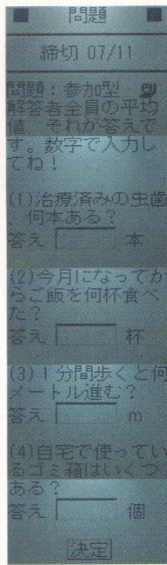 問題
締切 07/11
問題：参加型
解答者全員の平均
値、それが答えで
す。数字で入力し
てね！
(1)治療済みの虫歯
何本ある？
答え 本
(2)今月になってか
らご飯を何杯食べ
た？
答え 杯
(3)１分間歩くと何
メートル進む？
答え m
(4)自宅で使ってい
るゴミ箱はいくつ
ある？
答え 個
決定